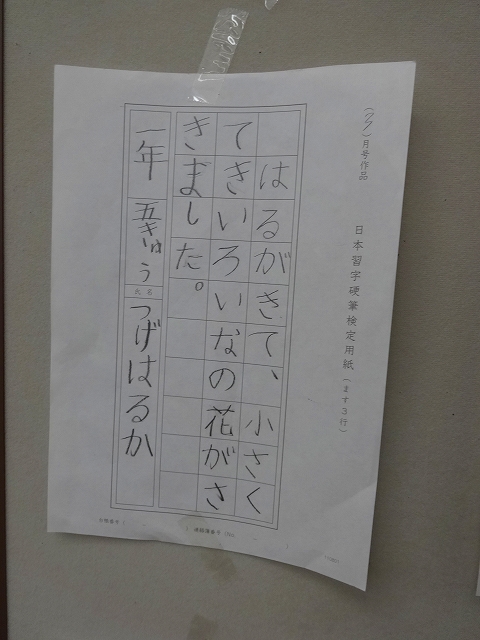 ()月号作品
日本習字硬筆検定用紙(ます3行)
はるがきて、小さく
てきいろいなの花がさ
きました。
一年 五きゅう
氏名
つげはるか